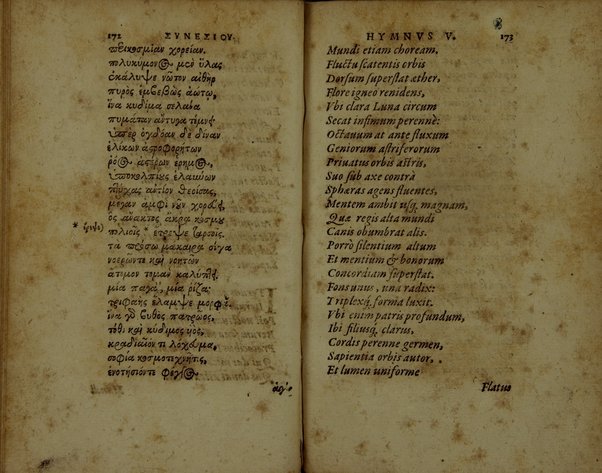 172 ΣΥΝΕΣΙΟΥ.
πεικοσμίαν χορείαν.
πολυκύμονος μετὰ ὕλας
ἐκάλυψε νῶτον αἰθὴρ
πυρὸς ἐμβεβὼς ἀώτῳ,
ἵνα κυδίμα σελάνα
πυμάταν ἄντυγα τέμνει
ὑπὲρ ὀγδόαν δὲ δίναν
ἑλίκων ἀστροφορήτων
ῥόος ἀστέρων ἔρημος,
ὑποκολπίους ἐλαύνων
πτύχας ἀντίον θεοίσας,
μέγαν ἀμφὶ νοῦν χορεύει,
ὃς ἄνακτος ἄκρα κόσμου
* ἔρεψε) πολιοῖς * ἔτρεψε ταρσοῖς.
τὰ πρόσω μάκαιρα σιγὰ
νοερῶντε καὶ νοητῶν
ἄτομον τομὰν καλύπτει.
μία παγὰ, μία ῥίζα:
τριφαὴς ἔλαμψε μορφά.
ἵνα γὰ βυθὸς πατρῷος,
τόθι καὶ κύδιμος υἱὸς,
κραδιαῖόν τι λόχευμα,
σοφία κοσμοτεχνῖτις,
ἑνοτήσιόντε φέγγος
ἁγί-
HYMNVS V. 173
Mundi etiam choream.
Fluctu scatentis orbis
Dorsum superstat æther,
Flore igneo renidens,
Vbi clara Luna circum
Secat infimum perennè:
Octauum at ante fluxum
Geniorum astriferorum
Priuatus orbis astris,
Suo sub axe contrà
Sphæras agens fluentes,
Mentem ambit usq; magnam,
Quæ regis alta mundi
Canis obumbrat alis.
Porrò silentium altum
Et mentium & bonorum
Concordiam superstat.
Fons unus, una radix:
Triplexq; forma luxit.
Vbi enim patris profundum,
Ibi filiusq; clarus,
Cordis perenne germen,
Sapientia orbis autor,
Et lumen uniforme
Flatus